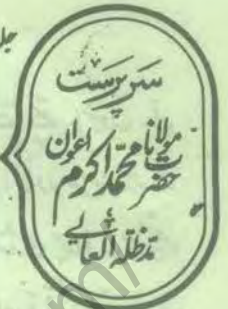 سرپرست
حضرت مولانا محمد اکرم اعوان
مدظلہ العالی